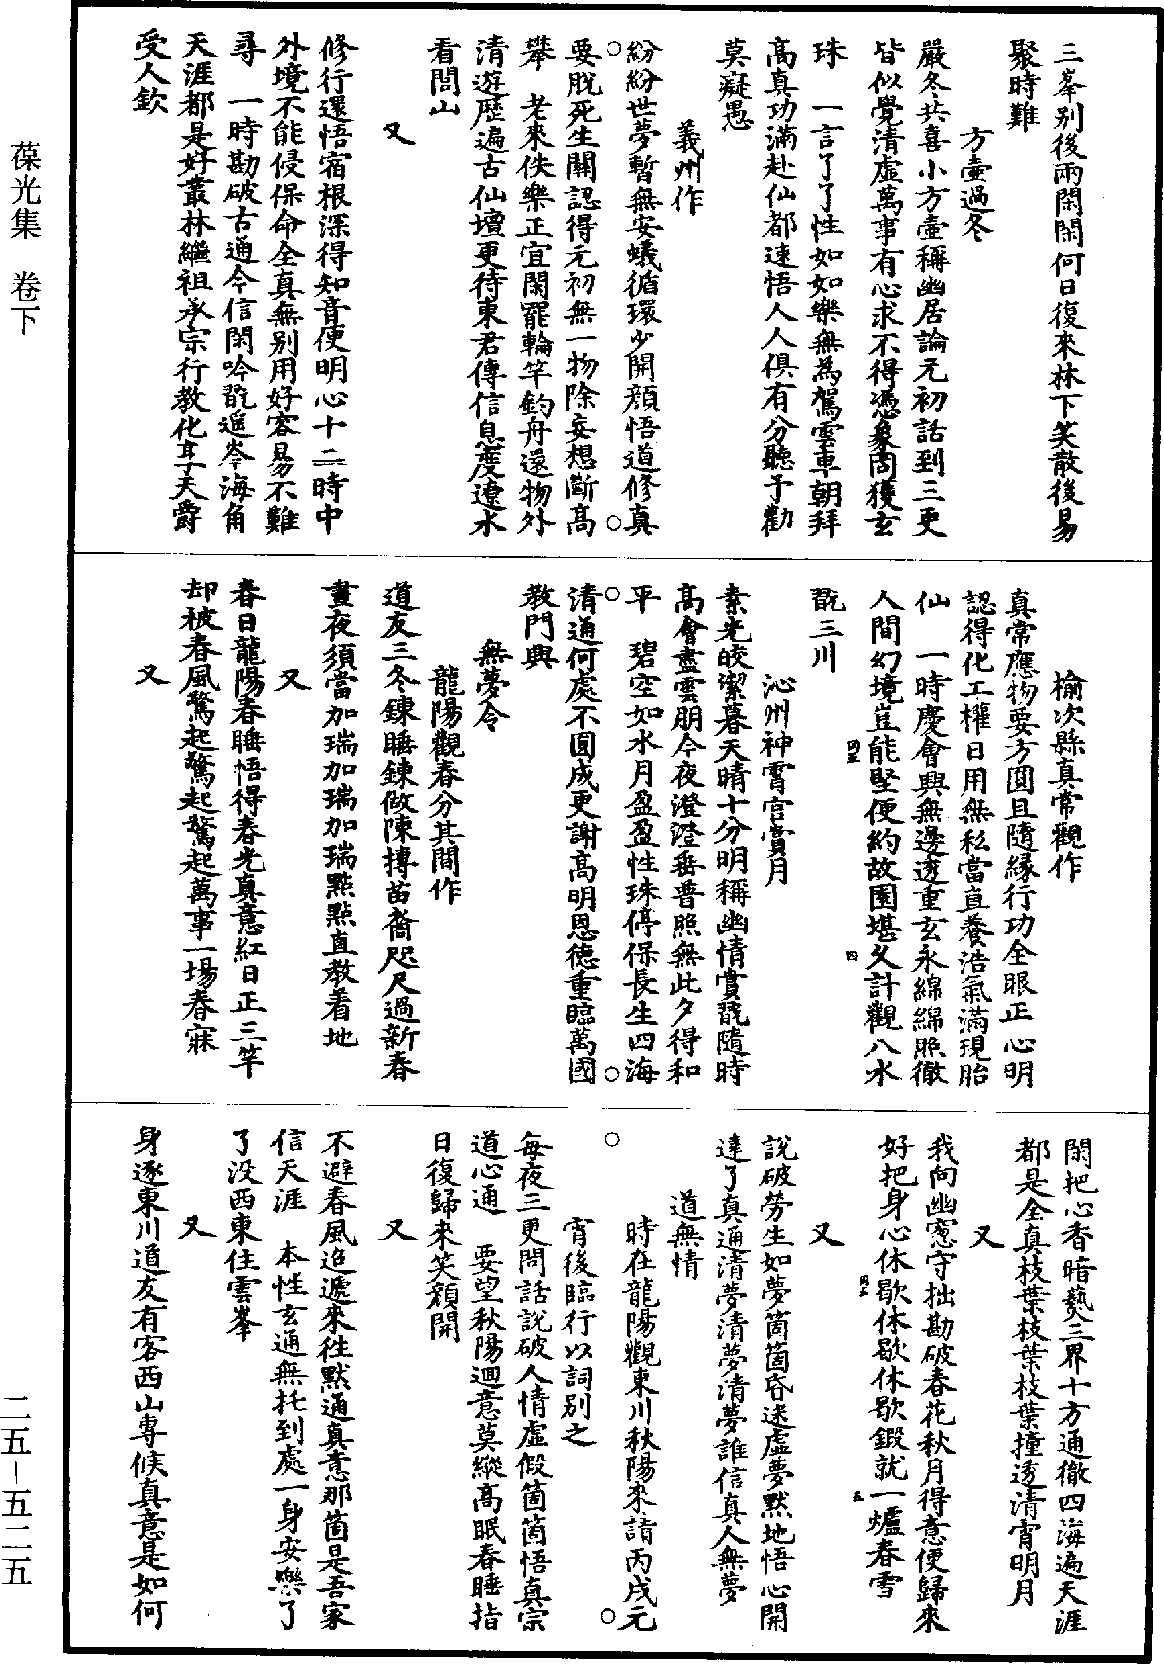 三峯别後兩閑閑何日復來林下笑散後易
聚時難
方壷過冬
嚴冬共喜小方壷稱幽居論元初話到三更
皆似覺清虛萬事有心求不得憑象罔獲玄
珠　一言了了性如如樂無為駕雲車朝拜
高真功滿赴仙都速悟人人俱有分聽予勸
莫癡愚
義州作
紛紛世夢暫無安蟻循環少開顏悟道修真
要脱死生關認得元初無一物除妄想斷高
攀　老來佚樂正宜閑罷輪竿釣舟還物外
清遊歷遍古仙壇更待東君傳信息度遼水
看閭山
又
修行還悟宿根深得知音便明心十二時中
外境不能侵保命全真無别用好容易不難
尋　一時勘破古通今信閑吟翫遥岑海角
天涯都是好叢林繼祖承宗行教化享天爵
受人欽
榆次縣真常觀作
真常應物要方圓且隨緣行功全眼正心明
認得化工權日用無私當直養浩氣滿現胎
仙　一時慶會興無邊透重玄永綿綿照徹
人間幻境豈能堅便約故園堪久計觀八水
翫三川
沁州神霄宫賞月
素光皎潔暮天晴十分明稱幽情賞翫隨時
高會盡雲朋今夜澄澄垂普照無此夕得和
平　碧空如水月盈盈性珠停保長生四海
清通何處不圓成更謝高明恩德重臨萬國
教門興
無夢令
龍陽觀春分其間作
道友三冬鍊睡鍊做陳摶苗裔咫尺過新春
晝夜須當加瑞加瑞加瑞點點直教着地
又
春日龍陽春睡悟得春光真意紅日正三竿
却被春風驚起驚起驚起萬事一場春寐
又
閑把心香暗爇三界十方通徹四海遍天涯
都是全真枝葉枝葉枝葉撞透清宵明月
又
我向幽窻守拙勘破春花秋月得意便歸來
好把身心休歇休歇休歇鍛就一爐春雪
又
說破勞生如夢箇箇昏迷虛夢默地悟心開
達了真通清夢清夢清夢誰信真人無夢
道無情
時在龍陽觀東川秋陽來請丙戌元
宵後臨行以詞别之
每夜三更問話說破人情虛假箇箇悟真宗
道心通　要望秋陽迴意莫縱高眠春睡指
日復歸來笑顏開
又
不避春風迢遞來徃默通真意那箇是吾家
信天涯　本性玄通無托到處一身安樂了
了没西東住雲峯
又
身逐東川道友有客西山專候真意是如何
葆光集　卷下
二五－五二五